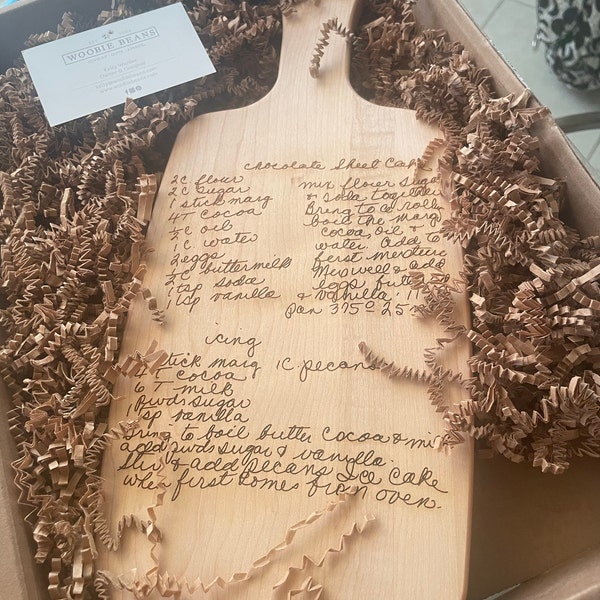 WOOBIE BEANS
chocolate Sheet Cake
2C flour
2C Sugar
1 stick marg
4T cocoa
oil
1 C. water
2 eggs
buttermilk
1 tsp soda
1 tsp vanilla
mix flour Suga
& soda together
Bring to a roll
boil the marg
cocoa oil &
water. Add to
first mexture
Mixwell & add
eggs but
& vanilla. 11
pan 375° 25 m
icing
stick marg 1C pecans
4 T cocoa
6 T milk
Pwd Sugar
1 tsp vanilla
Bring to boil butter cocoa & mi
add pwd sugar & vanilla.
Stir & add pecans Ice Cake
when first comes from oven.